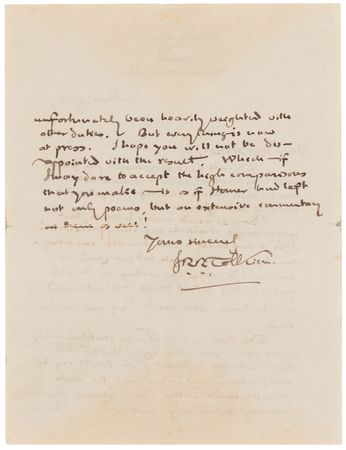 unfortunately been heavily weighted with
other duties. But everything is now
at press. I hope you will not be dis-
appointed with the result. Which – if
I may dare to accept the high comparisons
that you make – is as if Homer had left
not only poems, but an extensive commentary
on them as well!
Yours sincerely
JRRTolkien.